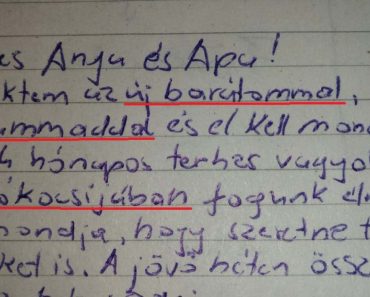 es Anyu és Apu!
ktem az új barátommal,
ummaddal és el kell mond
hónapos terhes vagyo
ókocsijában fogunk él
mondja, hogy szeretne t
ket is. A jövő héten össz